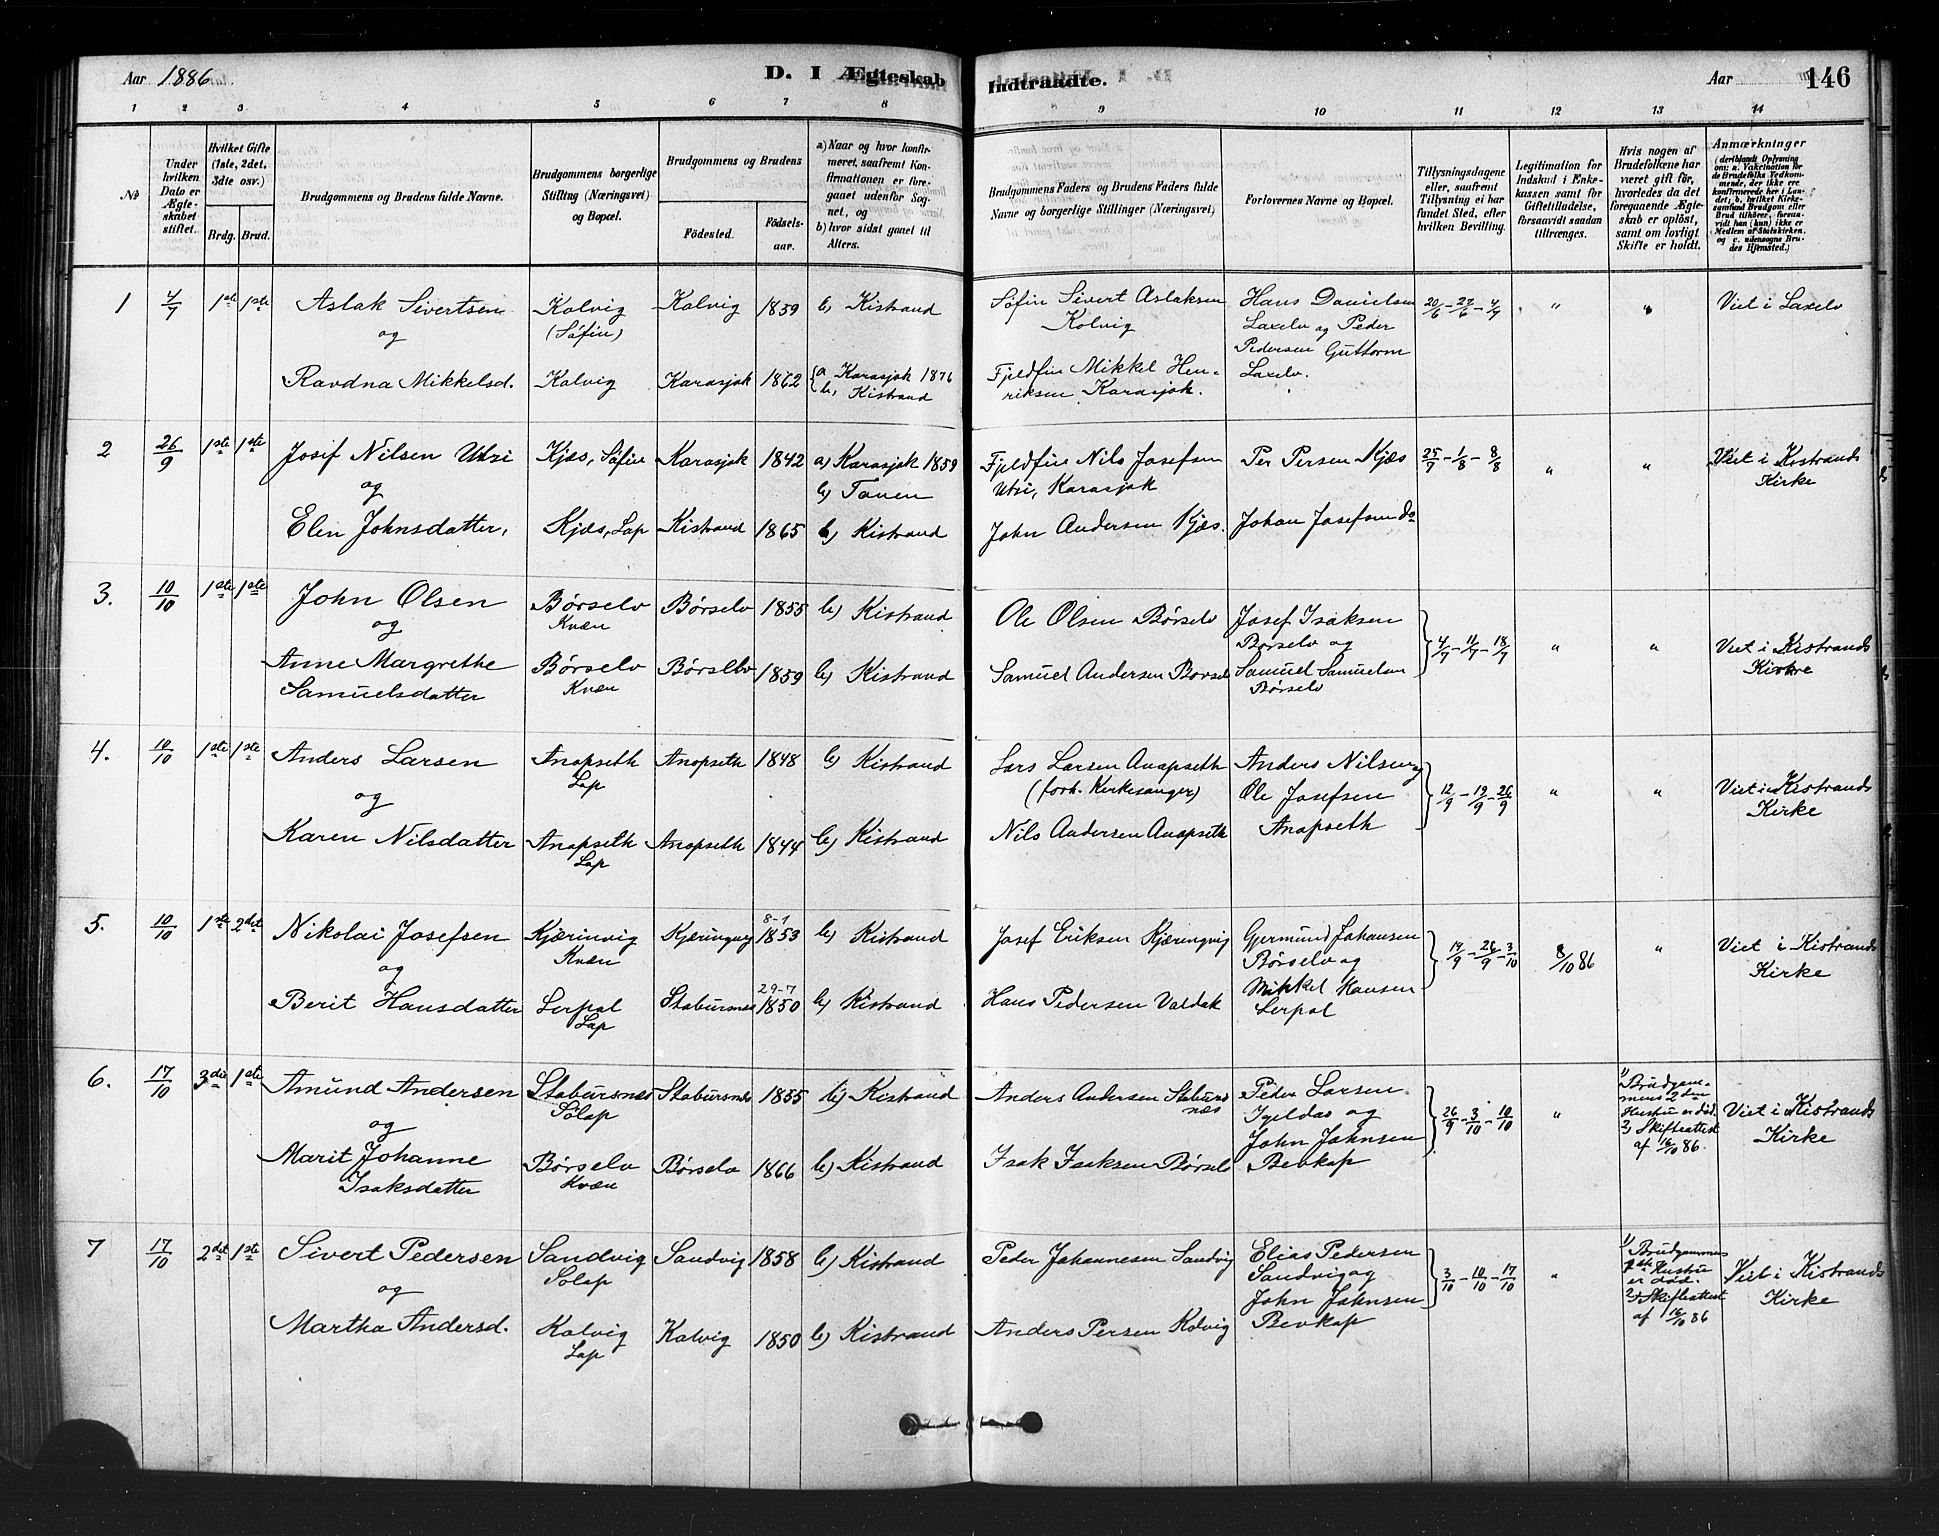 Aar 1886
D. I Ægteskab
Indtraadte.
Aar
146
1 2 3 4 5 6 7 8
9 10 11 12 13 14
No
Under hvilken Dato er Ægteskabet stiftet.
Hvilket Gifte (1ste, 2det, 3die osv.)
Brdg. Brud.
Brudgommens og Brudens fulde Navne.
Brudgommens borgerlige Stilling (Næringsvei) og Bopæl.
Brudgommens og Brudens
Fødested.
Fødselsaar.
a) Naar og hvor konfirmeret, saafremt Konfirmationen er foregaaet udenfor Sognet, og
b) hvor sidst gaaet til Alters.
Brudgommens Faders og Brudens Faders fulde Navne og borgerlige Stillinger (Næringsvei)
Forlovernes Navne og Bopæl.
Tillysningsdagene eller, saafremt Tillysning ei har fundet Sted, efter hvilken Bevilling.
Legitimation for Indskud i Enkekassen samt for Giftetilladelse, forsaavidt saadan tiltrænges.
Hvis nogen af Brudefolkene har været gift før, hvorledes da det foregaaende Ægteskab er opløst, samt om lovligt Skifte er holdt.
Anmærkninger
(deriblandt Oplysning om: a. Vakcination for de Brudefolks Vedkommende, der ikke ere konfirmerede her i Landet; b. hvilket Kirkesamfund Brudgom eller Brud tilhører, forsaavidt han (hun) ikke er Medlem af Statskirken, og c. udensogns Brudes Hjemsted.)
1 4/7 1ste 1ste Aslak Sivertsen Kolvig (Søfin) Kolvig 1859 b) Kistrand Søfin Sivert Aslaksen Kolvig Hans Danielsen Laxelv og Peder Pedersen Guttorm Laxelv. 20/6 - 27/6 - 4/7 " " Viet i Laxelv
og
Ravdna Mikkelsd. Kolvig Karasjok 1862 a Karasjok 1876 b, Kistrand Fjeldfin Mikkel Henriksen Karasjok.
2 26/9 1ste 1ste Josif Nilsen Utsi Kjæs, Søfin Karasjok 1842 a) Karasjok 1859 b) Tanen Fjeldfin Nils Josefsen Utsi, Karasjok Per Persen Kjæs 25/7 - 1/8 - 8/8 " " Viet i Kistrands Kirke
og
Elen Johnsdatter, Kjæs, Lap Kistrand 1865 b) Kistrand John Andersen Kjæs. Johan Josefsen do
3. 10/10 1ste 1ste John Olsen Børselv Kvæn Børselv 1855 b) Kistrand Ole Olsen Børselv Josef Isaksen Børselv og 4/7 - 11/7 - 18/7 " " Viet i Kistrands Kirke
og
Anne Margrethe Samuelsdatter Børselv Kvæn Børselv 1859 b) Kistrand Samuel Andersen Børselv Samuel Samuelsen Børselv
4. 10/10 1ste 1ste Anders Larsen Anopseth Lap Anopseth 1848 b) Kistrand Lars Larsen Anopseth (forh. Kirkesanger) Anders Nilsen og 12/9 - 19/9 - 26/9 " " Viet i Kistrands Kirke
og
Karen Nilsdatter Anopseth Lap Anopseth 1844 b) Kistrand Nils Andersen Anopseth Ole Josefsen Anopseth
5. 10/10 1ste 2det Nikolai Josefsen Kjærinvig Kvæn Kjæringvig 8-1 1853 b) Kistrand Josef Eriksen Kjæringvig Gjermund Johansen Børselv og 19/9 - 26/9 - 3/10 8/10 86 " Viet i Kistrands Kirke
og
Berit Hansdatter Lerpol Lap Stabursnes 29-7 1850 b) Kistrand Hans Pedersen Valdak Mikkel Hansen Lerpol
6. 17/10 3die 1ste Amund Andersen Stabursnes Sølap Stabursnes 1855 b) Kistrand Anders Andersen Stabursnæs Peder Larsen Igeldas og 26/9 - 3/10 - 10/10 " 1) Brudgommens 2den Hustru er død. 2) Skifteattest af 16/10 86. Viet i Kistrands Kirke
og
Marit Johanne Isaksdatter Børselv Kvæn Børselv 1866 b) Kistrand Isak Isaksen Børselv John Johnsen Bevkap
7 17/10 2det 1ste Sivert Pedersen Sandvig Sølap Sandvig 1858 b) Kistrand Peder Johannesen Sandvig Elias Pedersen Sandvig og 3/10 - 10/10 - 17/10 " 1) Brudgommens 1ste Hustru er død. 2) Skifteattest af 16/10 86 Viet i Kistrands Kirke
og
Martha Andersd. Kolvig Lap Kolvig 1850 b) Kistrand Anders Persen Kolvig John Johnsen Bevkap